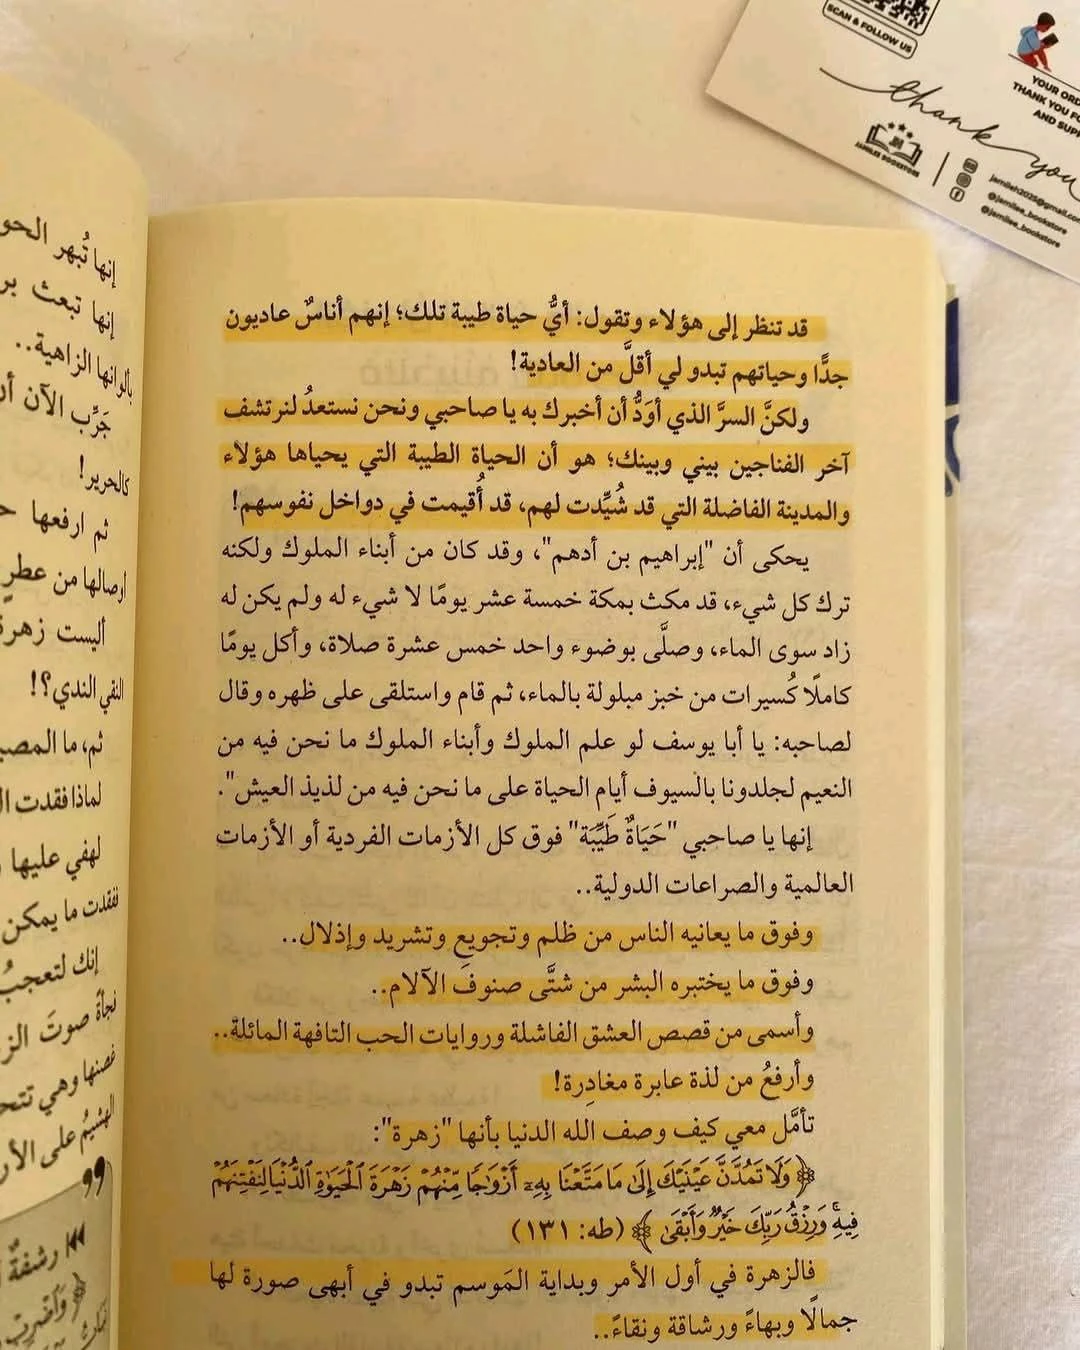 SCAN & FOLLOW US
YOUR
THANK YOU
AND
thank you
JAMILEE BOOKSTORE
jamileh2025@gmail.com
@jamilee_bookstore
@jamilee_bookstore
قد تنظر إلى هؤلاء وتقول: أيُّ حياة طيبة تلك؛ إنهم أناسٌ عاديون
جدًّا وحياتهم تبدو لي أقلَّ من العادية!
ولكنَّ السرَّ الذي أوَدُّ أن أخبرك به يا صاحبي ونحن نستعدُ لنرتشف
آخر الفناجين بيني وبينك؛ هو أن الحياة الطيبة التي يحياها هؤلاء
والمدينة الفاضلة التي قد شُيِّدت لهم، قد أُقيمت في دواخل نفوسهم!
يحكى أن "إبراهيم بن أدهم"، وقد كان من أبناء الملوك ولكنه
ترك كل شيء، قد مكث بمكة خمسة عشر يومًا لا شيء له ولم يكن له
زاد سوى الماء، وصلَّى بوضوء واحد خمس عشرة صلاة، وأكل يومًا
كاملًا كُسيرات من خبز مبلولة بالماء، ثم قام واستلقى على ظهره وقال
لصاحبه: يا أبا يوسف لو علم الملوك وأبناء الملوك ما نحن فيه من
النعيم لجلدونا بالسيوف أيام الحياة على ما نحن فيه من لذيذ العيش".
إنها يا صاحبي "حَيَاةٌ طَيِّبَة" فوق كل الأزمات الفردية أو الأزمات
العالمية والصراعات الدولية..
وفوق ما يعانيه الناس من ظلم وتجويع وتشريد وإذلال..
وفوق ما يختبره البشر من شتَّى صنوفَ الآلام..
وأسمى من قصص العشق الفاشلة وروايات الحب التافهة المائلة..
وأرفعُ من لذة عابرة مغادِرة!
تأمَّل معي كيف وصف الله الدنيا بأنها "زهرة":
﴿ وَلَا تَمُدَّنَّ عَيْنَيْكَ إِلَىٰ مَا مَتَّعْنَا بِهِۦٓ أَزْوَٰجًا مِّنْهُمْ زَهْرَةَ ٱلْحَيَوٰةِ ٱلدُّنْيَا لِنَفْتِنَهُمْ
فِيهِ ۚ وَرِزْقُ رَبِّكَ خَيْرٌ وَأَبْقَىٰ ﴾ (طه: ١٣١)
فالزهرة في أول الأمر وبداية المَوسم تبدو في أبهى صورة لها
جمالًا وبهاءً ورشاقة ونقاءً..
إنها تُبهر
إنها تبعث
بألوانها الزاهية..
جَرِّب الآن
كالحرير!
ثم ارفعها
أوصالها من عطرٍ
أليست زهرة
النقي الندي؟!
ثم، ما
لماذا فقدت
لهفي عليها
ففقدت ما يمكن
إنك لتعجبُ
فجأةً صوتَ
غصنها وهي
الهشيمُ على
رشفةٌ